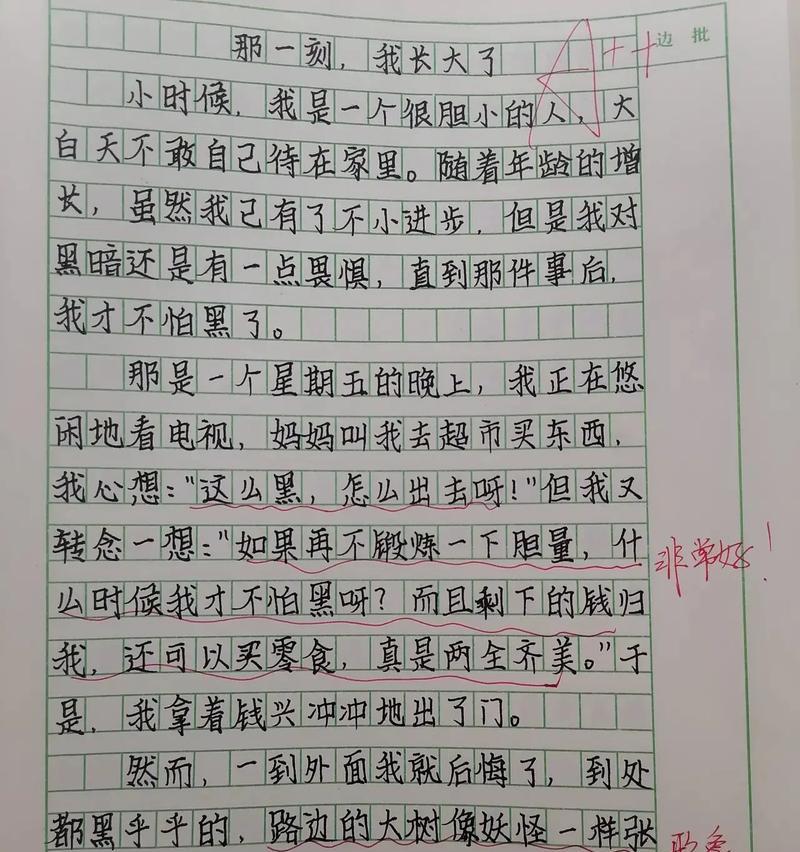 那一刻，我长大了
A++
边批
小时候，我是一个很胆小的人，大
白天不敢自己待在家里。随着年龄的增
长，虽然我已有了不小进步，但是我对
黑暗还是有一点畏惧，直到那件事后，
我才不怕黑了。
那是一个星期五的晚上，我正在悠
闲地看电视，妈妈叫我去超市买东西，
我心想："这么黑，怎么出去呀！"但我又
转念一想："如果再不锻炼一下胆量，什
非常好！
么时候我才不怕黑呀？而且剩下的钱归
我，还可以买零食，真是两全齐美。"于
是，我拿着钱兴冲冲地出了门。
然而，一到外面我就后悔了，到处
都黑乎乎的，路边的大树像妖怪一样张